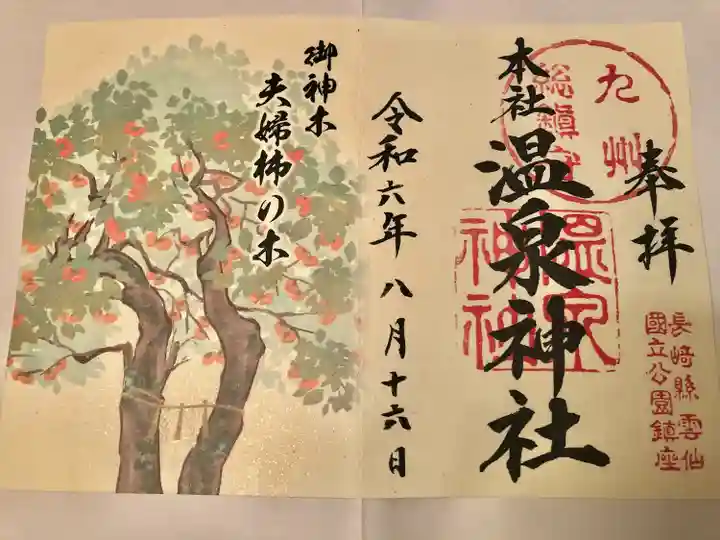 奉拝
九州
総鎮守
本社
温泉神社
温泉
神社
長崎縣雲仙
國立公園鎮座
令和六年八月十六日
御神木
夫婦柿の木